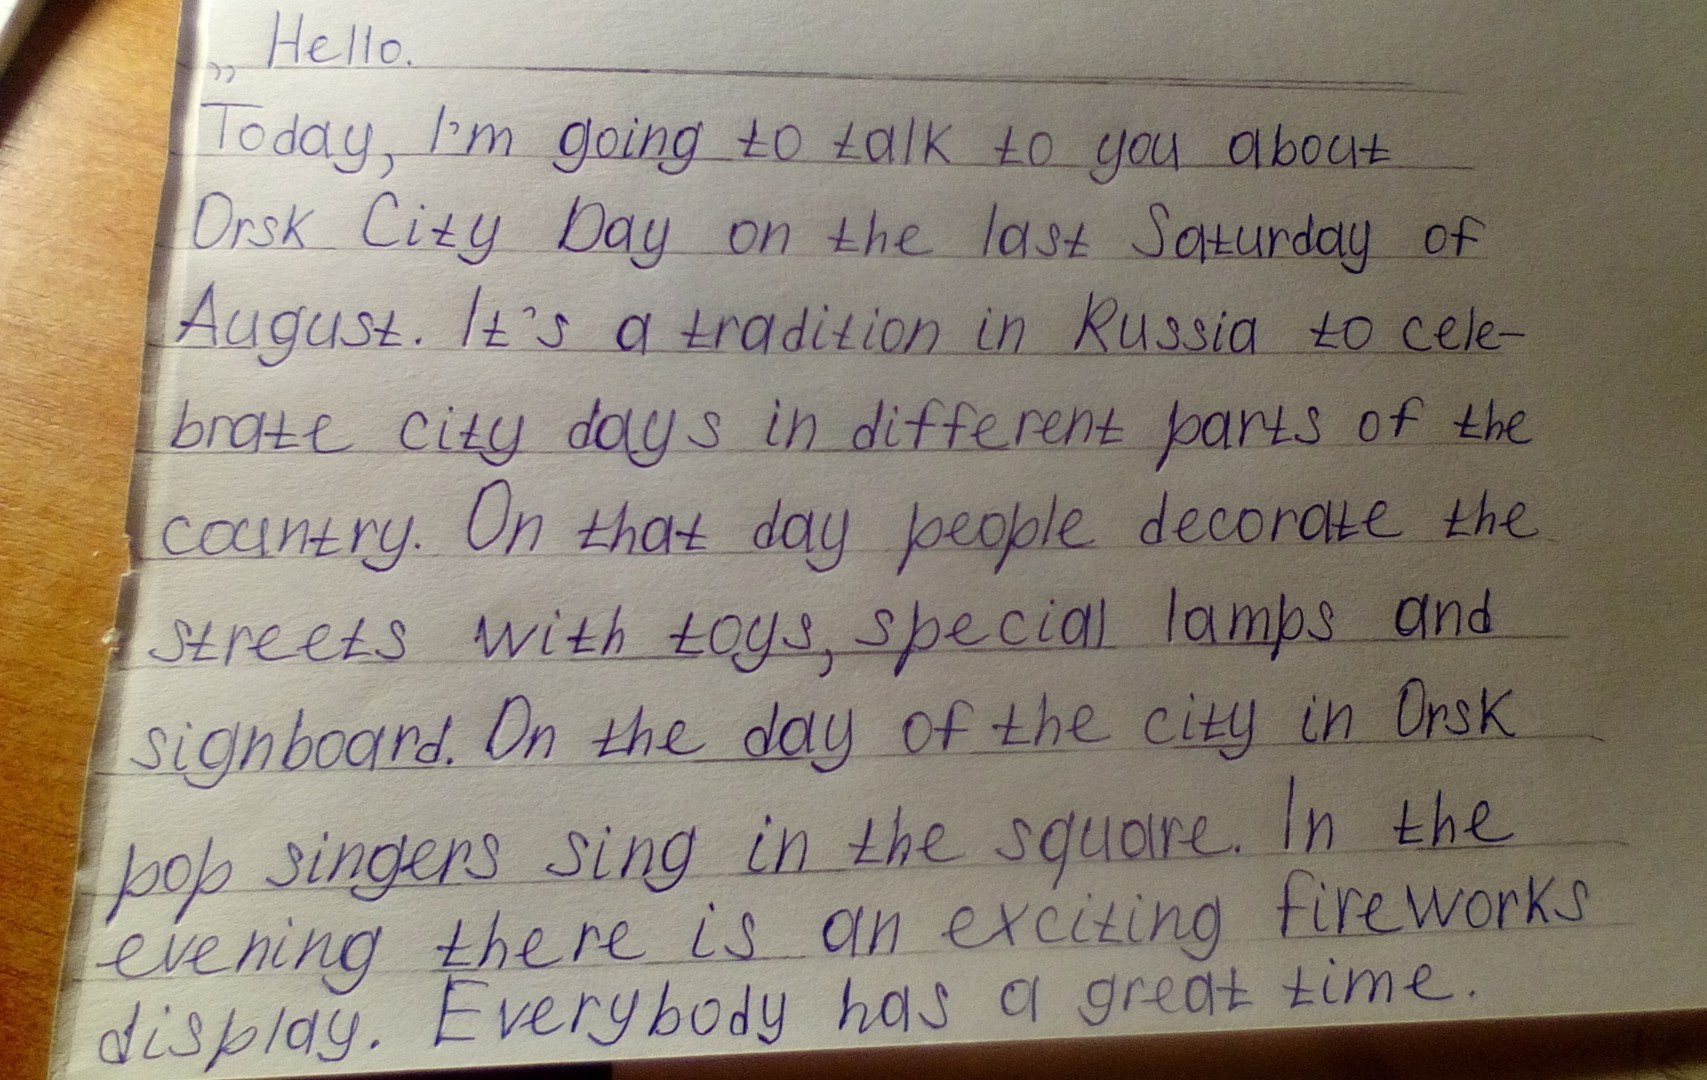 „ Hello.
Today, I'm going to talk to you about
Orsk City Day on the last Saturday of
August. It's a tradition in Russia to cele-
brate city days in different parts of the
country. On that day people decorate the
streets with toys, special lamps and
signboard. On the day of the city in Orsk
pop singers sing in the square. In the
evening there is an exciting fireworks
display. Everybody has a great time.